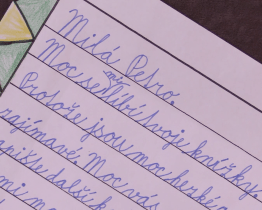 Milá Petro,
Moc se mi líbí tvoje knížky
Protože jsou moc hezké
zajímavé. Moc vás
další k
mi mo